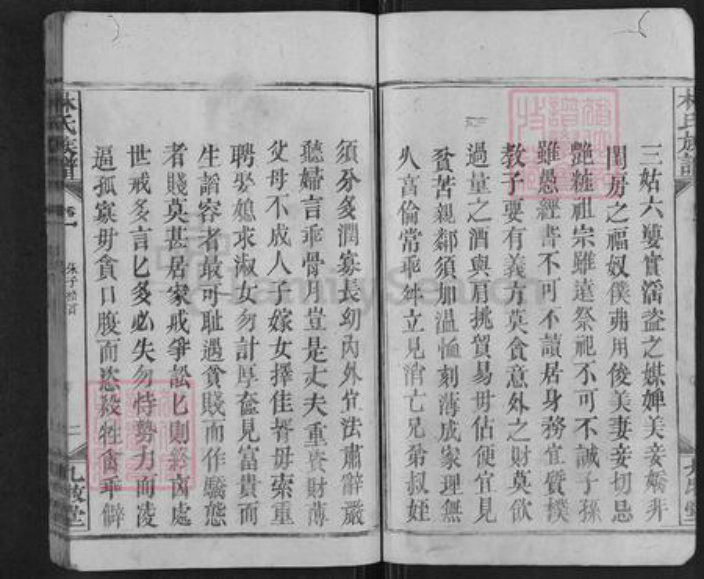 林氏族譜
三姑六婆實滛盜之媒婢美妾嬌非
閨房之福奴僕弗用俊美妻妾切忌
艶粧祖宗雖遠祭祀不可不誠子孫
雖愚經書不可不讀居身務宜質樸
教子要有義方莫貪意外之財莫飲
過量之酒與肩挑貿易毋佔便宜見
貧苦親鄰須加溫恤刻薄成家理無
久享倫常乖舛立見消亡兄弟叔姪
須分多潤寡長幼內外宜法肅辭嚴
聽婦言乖骨肉豈是丈夫重資財薄
父母不成人子嫁女擇佳壻毋索重
聘娶媳求淑女勿計厚奩見富貴而
生謟容者最可耻遇貧賤而作驕態
者賤莫甚居家戒爭訟訟則終凶處
世戒多言言多必失勿恃勢力而凌
逼孤寡毋貪口腹而恣殺牲禽乖僻
林氏族譜
卷一
二
九牧堂
FamilySearch